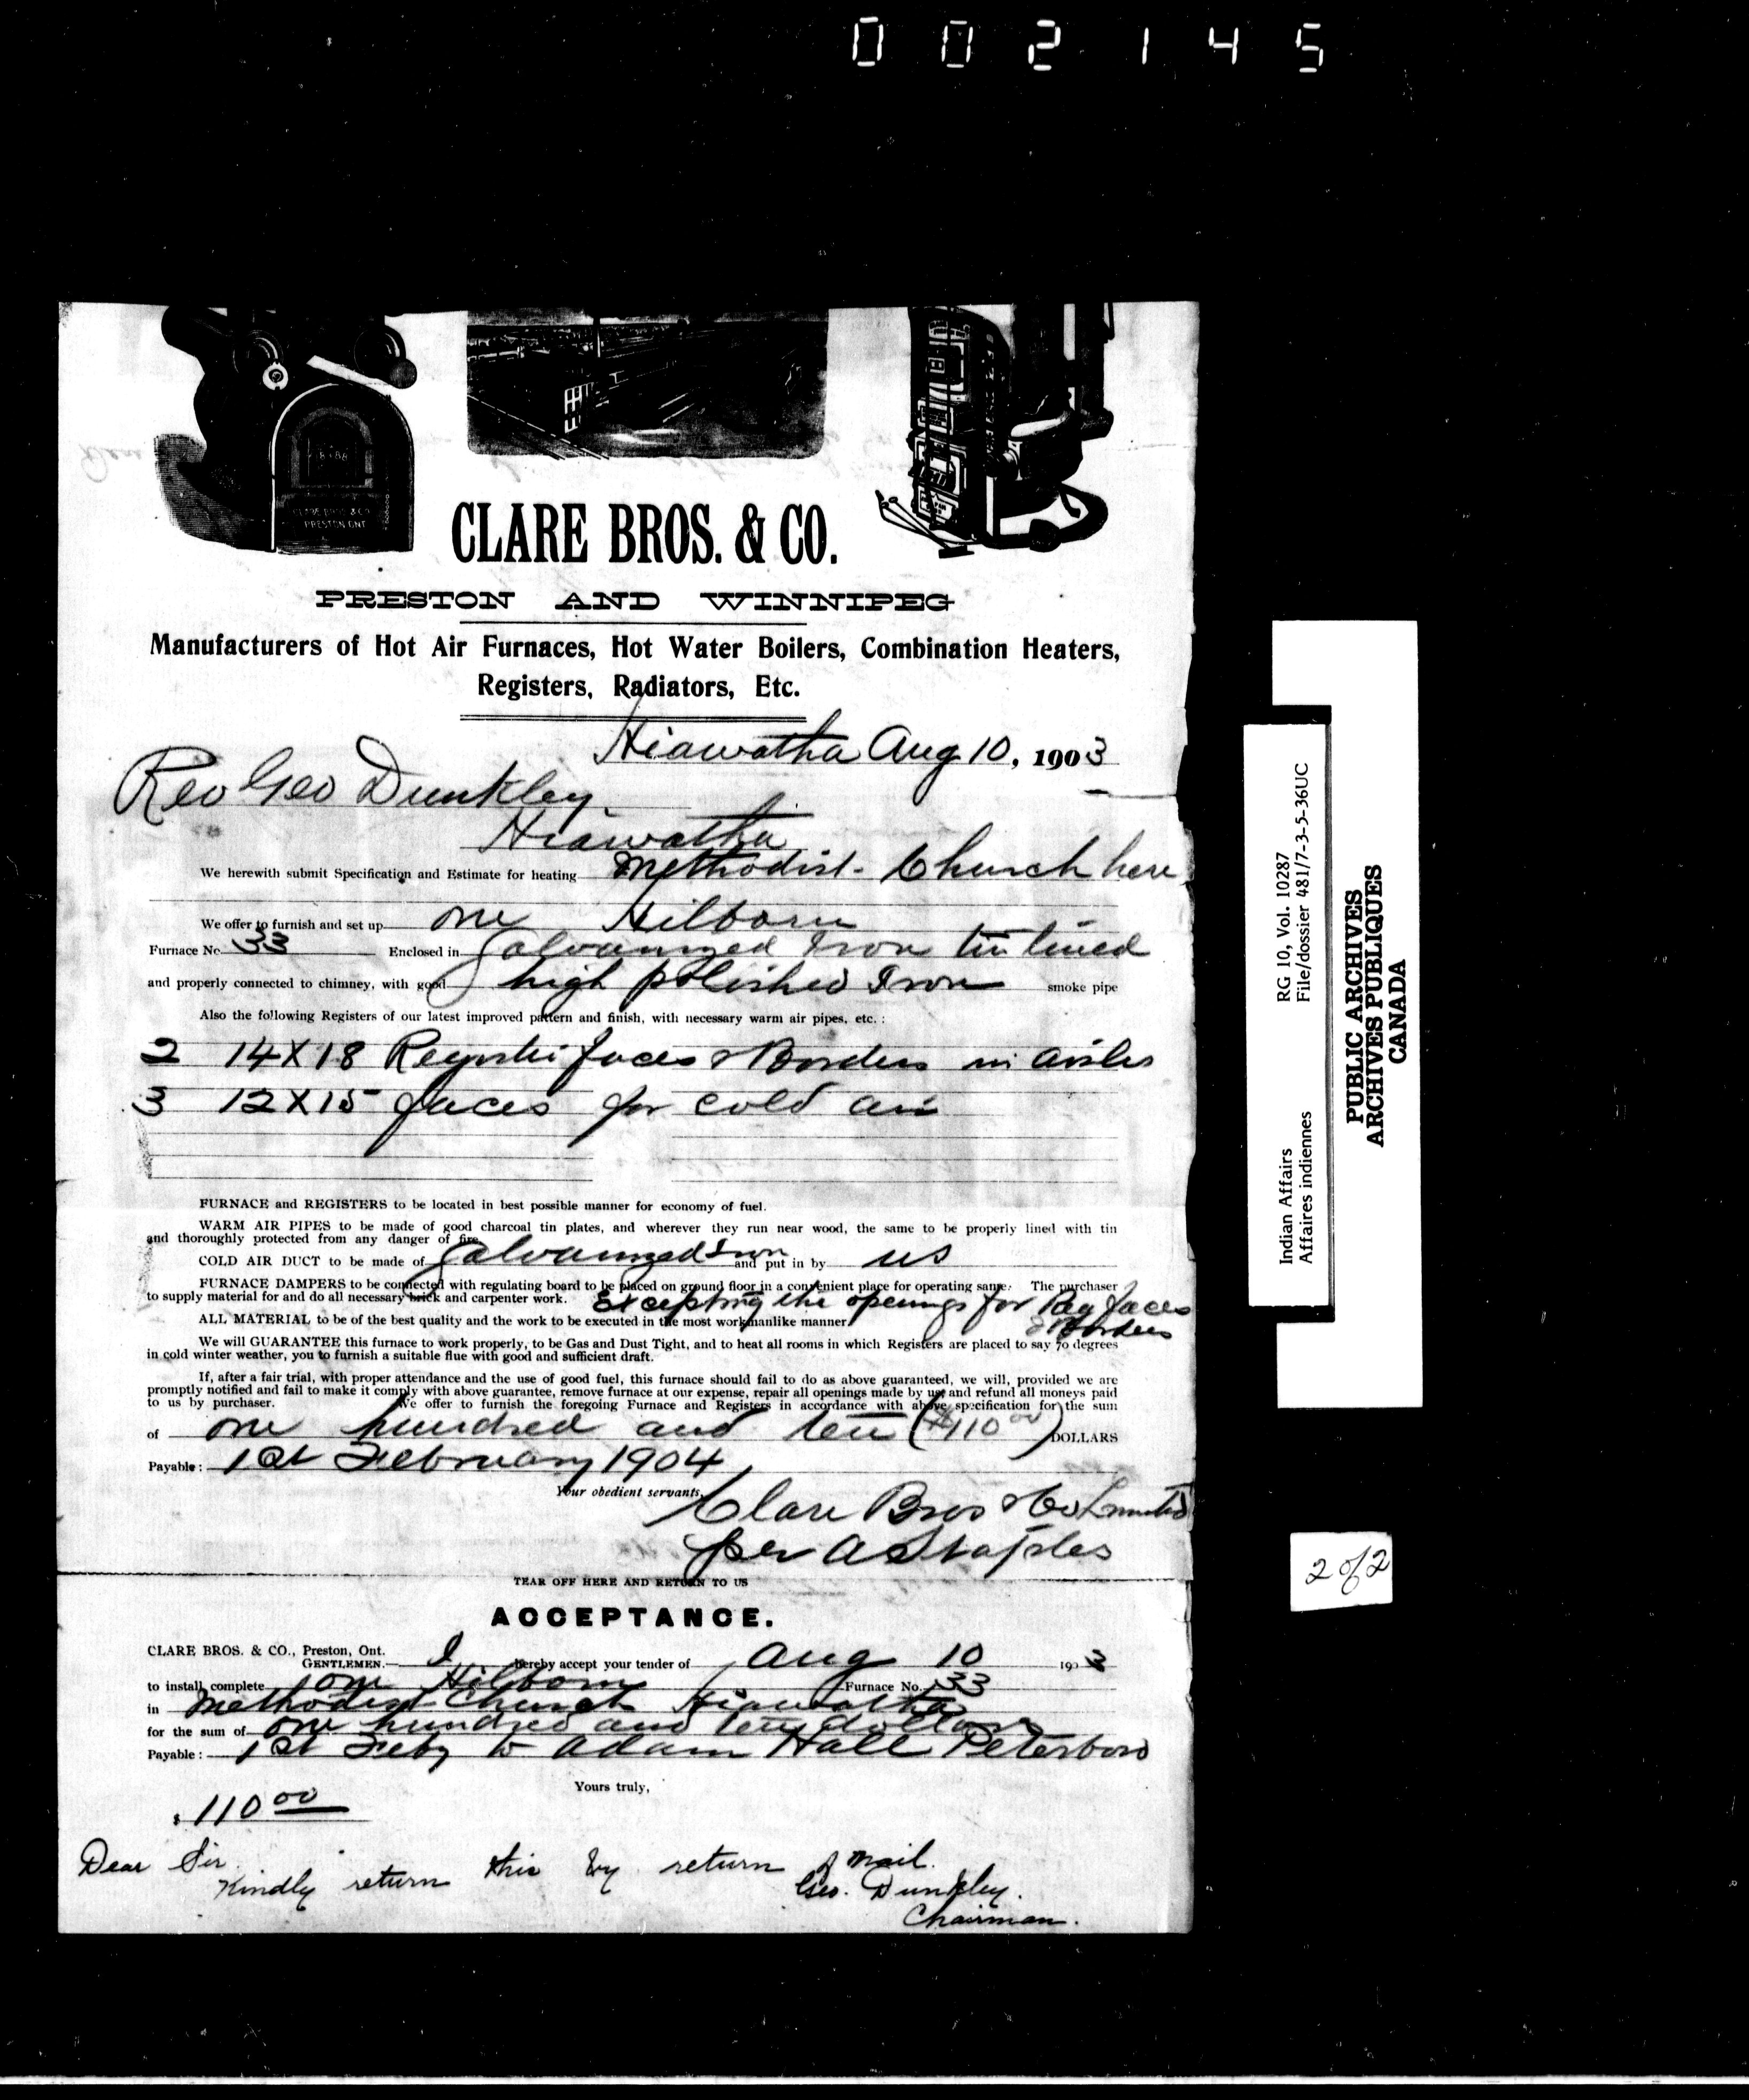 002145
CLARE BROS & CO
PRESTON ONT
CLARE BROS. & CO.
PRESTON AND WINNIPEG
Manufacturers of Hot Air Furnaces, Hot Water Boilers, Combination Heaters,
Registers, Radiators, Etc.
Hiawatha Aug 10, 1903
Rev Geo Dunkley.
Hiawatha
We herewith submit Specification and Estimate for heating Methodist Church here
We offer to furnish and set up one Hilborn
Furnace No. 33 Enclosed in Galvanized Iron tin lined
and properly connected to chimney, with good high polished Iron smoke pipe
Also the following Registers of our latest improved pattern and finish, with necessary warm air pipes, etc. :
2 14X18 Register faces & Borders in aisles
3 12X15 faces for cold air
FURNACE and REGISTERS to be located in best possible manner for economy of fuel.
WARM AIR PIPES to be made of good charcoal tin plates, and wherever they run near wood, the same to be properly lined with tin
and thoroughly protected from any danger of fire.
COLD AIR DUCT to be made of Galvanized Iron and put in by us
FURNACE DAMPERS to be connected with regulating board to be placed on ground floor in a convenient place for operating same. The purchaser
to supply material for and do all necessary brick and carpenter work. Excepting the openings for Reg faces
& Borders
ALL MATERIAL to be of the best quality and the work to be executed in the most workmanlike manner
We will GUARANTEE this furnace to work properly, to be Gas and Dust Tight, and to heat all rooms in which Registers are placed to say 70 degrees
in cold winter weather, you to furnish a suitable flue with good and sufficient draft.
If, after a fair trial, with proper attendance and the use of good fuel, this furnace should fail to do as above guaranteed, we will, provided we are
promptly notified and fail to make it comply with above guarantee, remove furnace at our expense, repair all openings made by us and refund all moneys paid
to us by purchaser. We offer to furnish the foregoing Furnace and Registers in accordance with above specification for the sum
of one hundred and ten ($110 00) DOLLARS
Payable : 1st February 1904
Your obedient servants,
Clare Bros & Co Limited
per A Staples
TEAR OFF HERE AND RETURN TO US
ACCEPTANCE.
CLARE BROS. & CO., Preston, Ont.
GENTLEMEN.— I hereby accept your tender of Aug 10 1903
to install complete one Hilborn Furnace No. 33
in Methodist Church Hiawatha
for the sum of one hundred and ten dollars
Payable : 1st Feby to Adam Hall Peterboro
Yours truly,
$ 110 00
Dear Sir.
Kindly return this by return of mail.
Geo. Dunkley.
Chairman.
Indian Affairs RG 10, Vol. 10287
Affaires indiennes File/dossier 481/7-3-5-36UC
PUBLIC ARCHIVES
ARCHIVES PUBLIQUES
CANADA
2 of 2